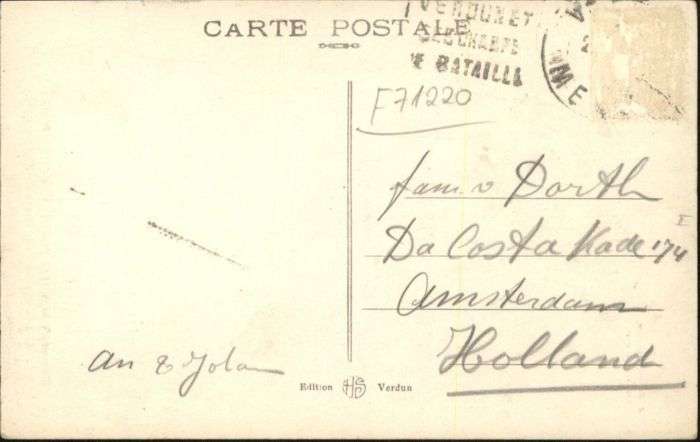 CARTE POSTALE
VERDUN ET
DE BATAILLE
F71220
fam v Dorth
Da Costa Kade 174
Amsterdam
Holland
An & Jolan
Edition HS Verdun